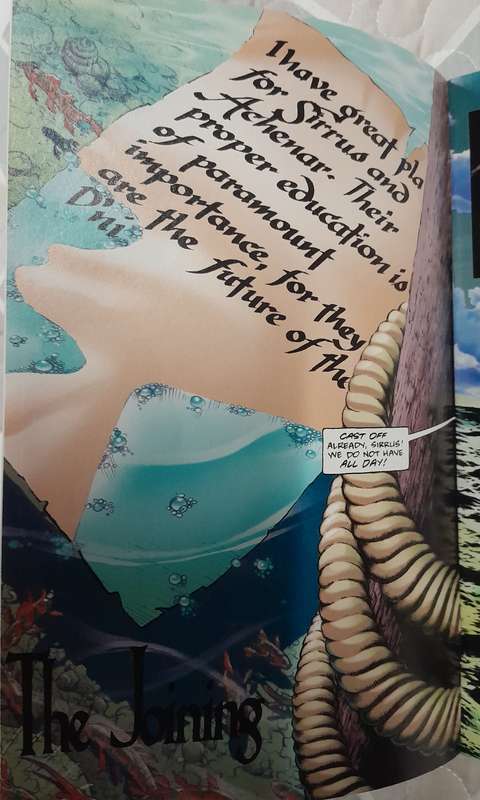 I have great pla
for Sirrus and
Achenar. Their
proper education is
of paramount
importance, for they
are the future of the
D'ni.
CAST OFF
ALREADY, SIRRUS!
WE DO NOT HAVE
ALL DAY!
The Joining